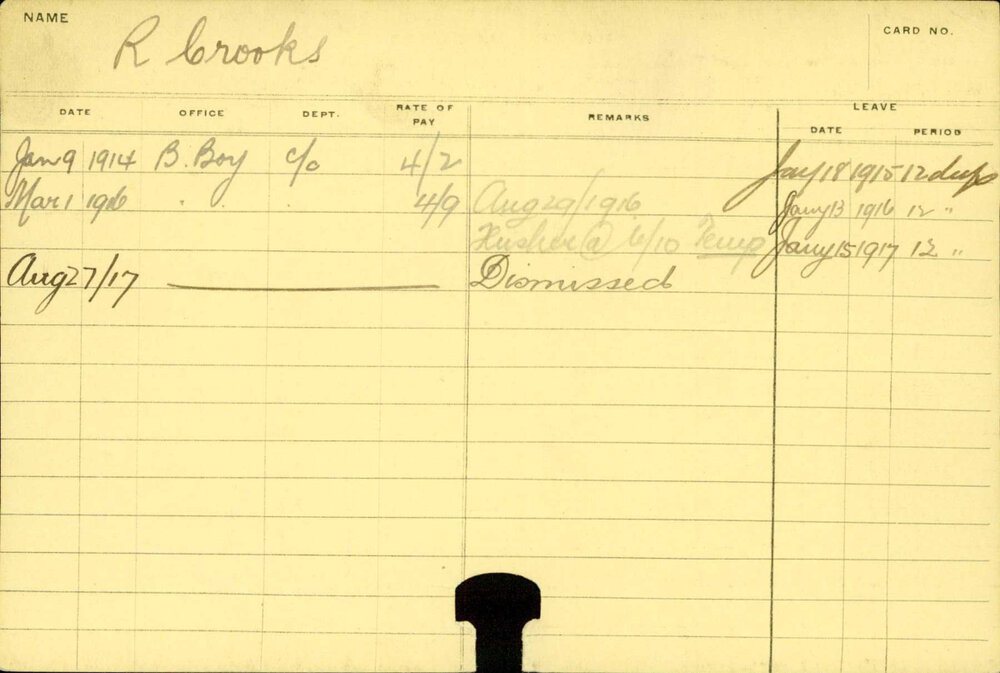 NAME
R Crooks
CARD NO.
DATE OFFICE DEPT. RATE OF PAY REMARKS LEAVE
DATE PERIOD
Jan 9 1914 B. Boy c/o 4/2 Jany 18 1915 12 days
Mar 1 1916 . . 4/9 Aug 29/1916 Jany 13 1916 12 "
@ 6/10 Temp Jany 15 1917 12 "
Aug 27/17 Dismissed